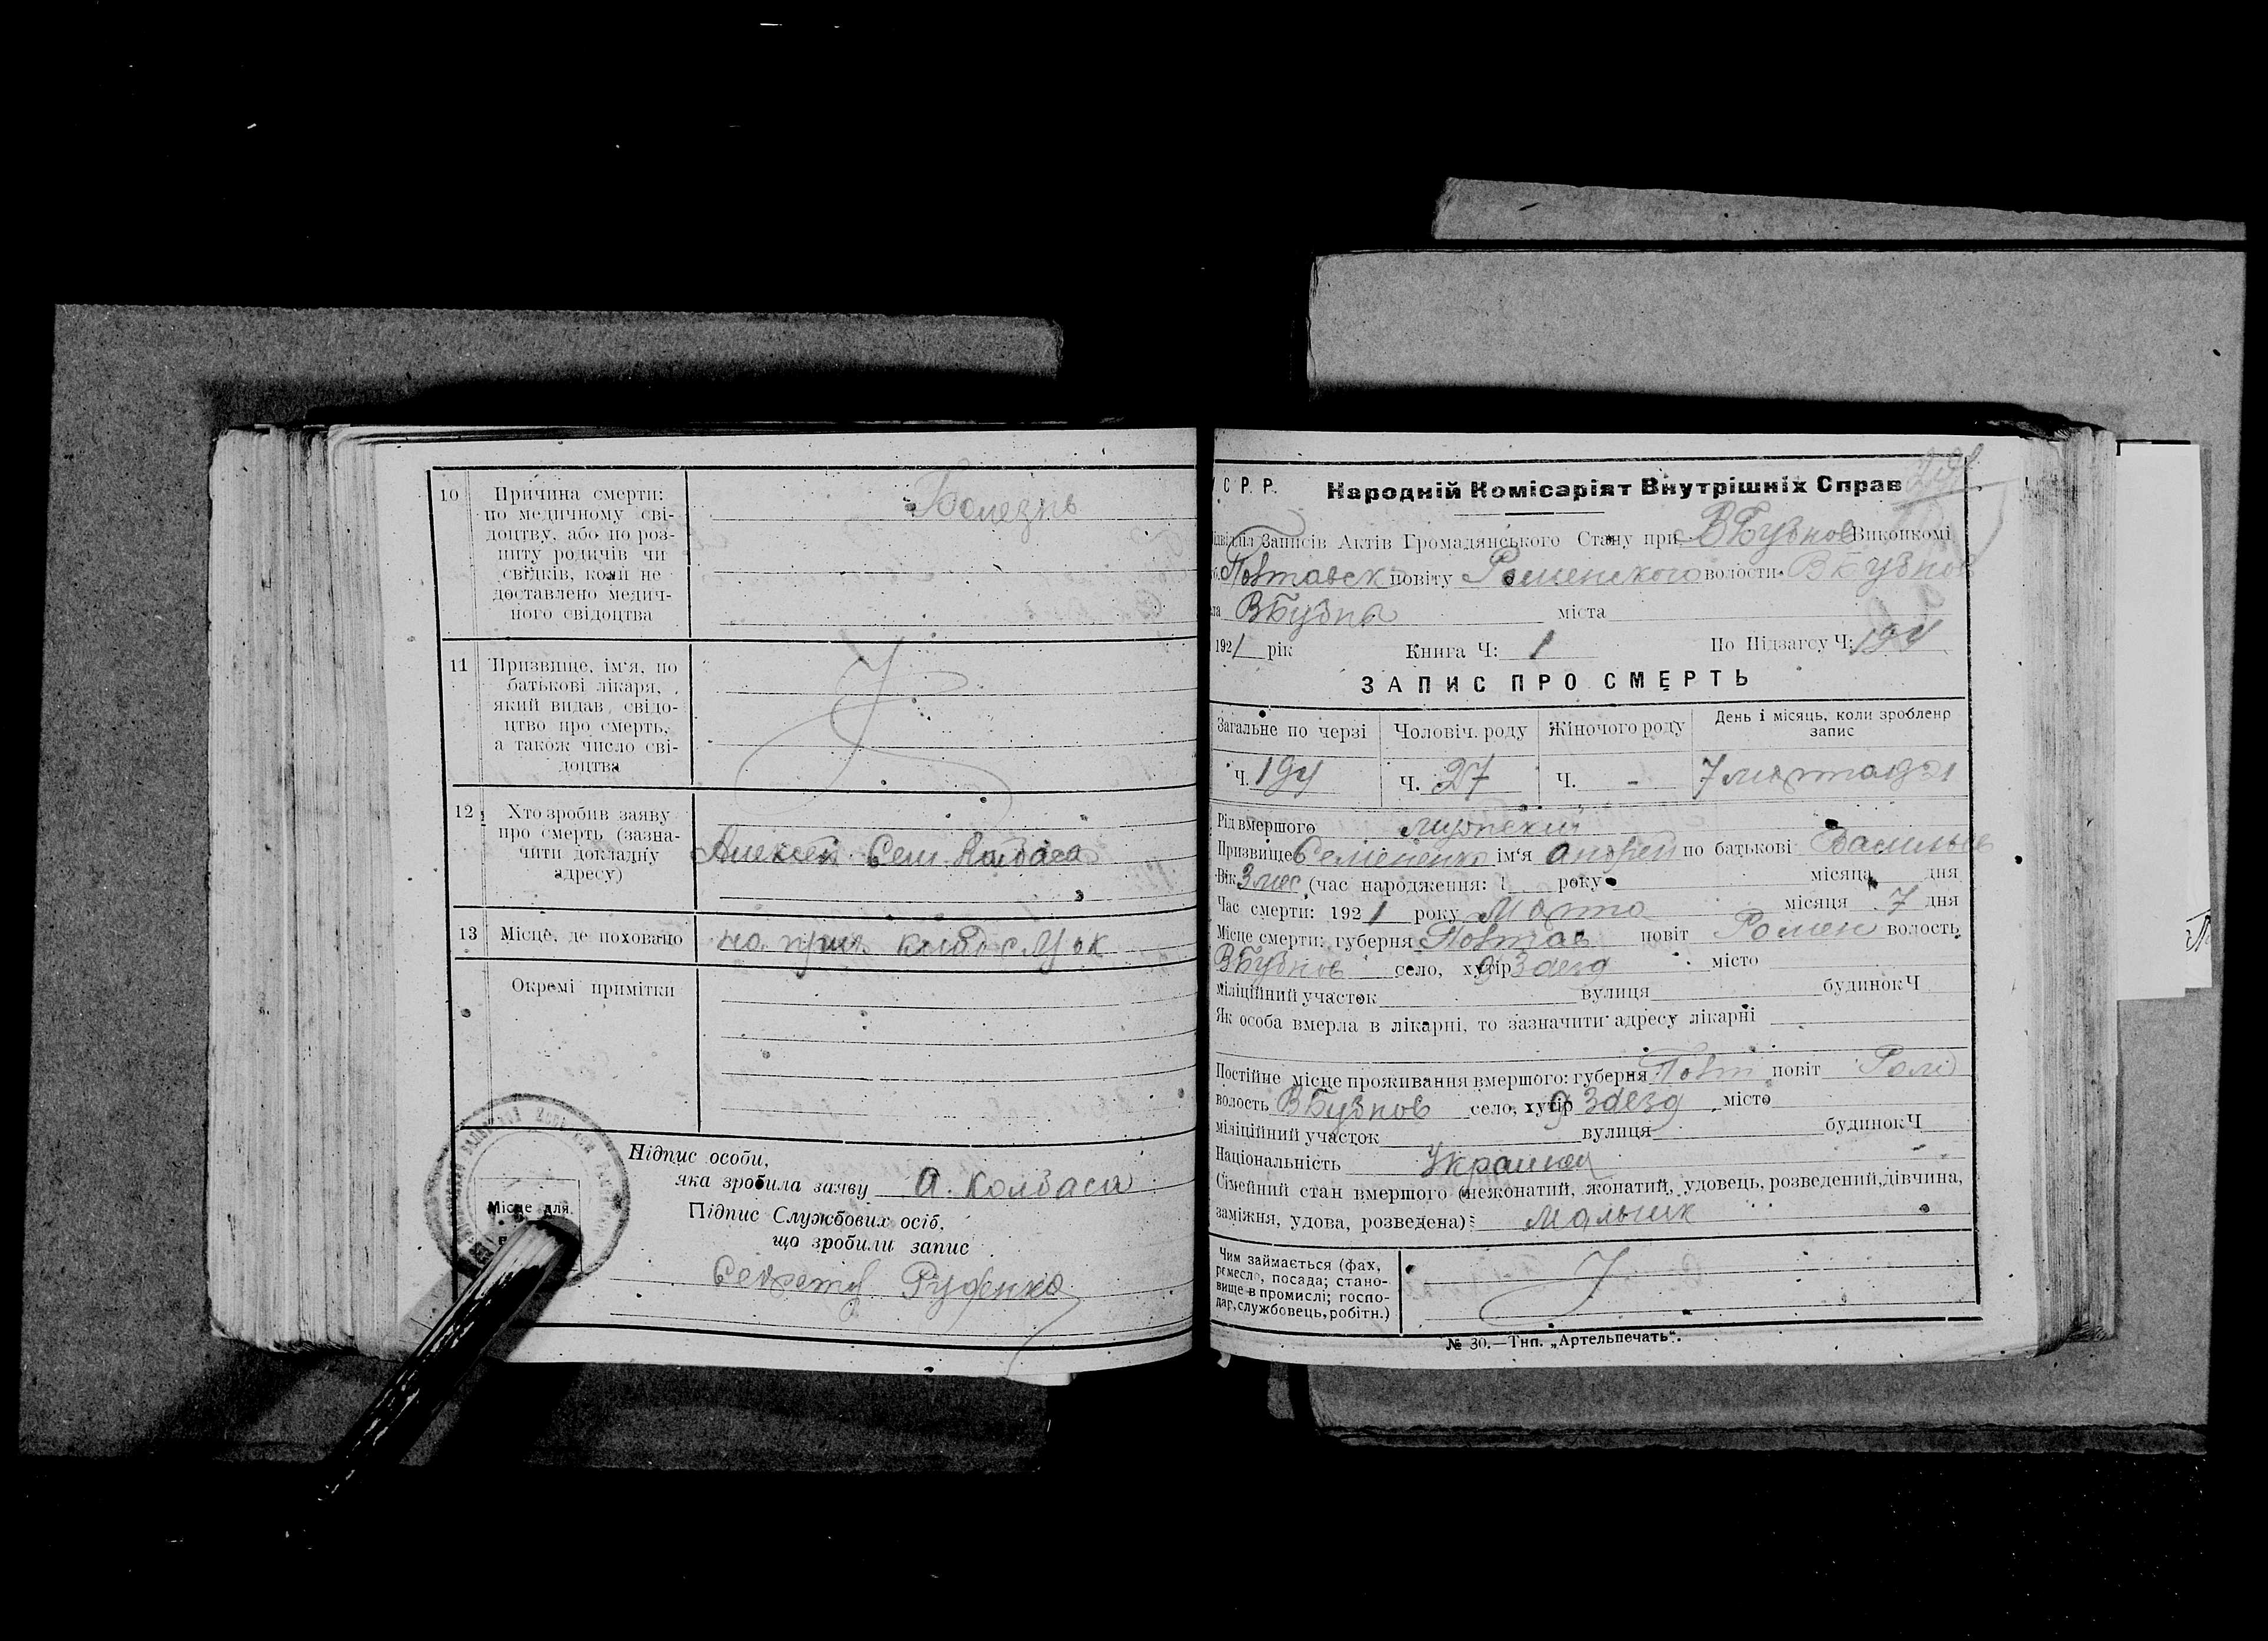 10 Причина смерти: Болезнь
по медичному сві-
доцтву, або по роз-
питу родичів чи
свідків, коли не
доставлено медич-
ного свідоцтва
11 Призвище, ім'я, по
батькові лікаря,
який видав свідо-
цтво про смерть,
а також число сві-
доцтва
12 Хто зробив заяву
про смерть (зазна-
чити докладну Алексей Сем Колбаса
адресу)
13 Місце, де поховано на прих кладб
Окремі примітки
Підпис особи,
яка зробила заяву А. Колбаса
Місце для
Підпис Службових осіб,
що зробили запис
Секретар Руденко
С Р. Р. Народній Комісаріят Внутрішніх Справ
Записів Актів Громадянського Стану при ВБубнов Виконкомі
Полтавск повіту Роменского волости ВБубнов
ВБубны міста
1921 рік Книга Ч: 1 По Підзагсу Ч: 194
ЗАПИС ПРО СМЕРТЬ
Загальне по черзі Чоловіч. роду Жіночого роду День і місяць, коли зроблено
запис
Ч. 194 Ч. 27 Ч. - 7 марта 921
Рід вмершого мужской
Призвище Семененко ім'я Андрей по батькові Васильев
Вік 3 мес (час народження: 1 року місяця дня
Час смерти: 1921 року Марта місяця 7 дня
Місце смерти: губерня Полтав повіт Ромен волость
ВБубнов село, хутір Заезд місто
міліційний участок вулиця будинок Ч
Як особа вмерла в лікарні, то зазначити адресу лікарні
Постійне місце проживання вмершого: губерня Полт повіт Ром
волость ВБубнов село, хутір Заезд місто
міліційний участок вулиця будинок Ч
Національність
Сімейний стан вмершого (нежонатий, жонатий, удовець, розведений, дівчина,
заміжня, удова, розведена): Мальчик
Чим займається (фах,
ремесло, посада; стано-
вище в промислі; госпо-
дар, службовець, робітн.)
№ 30.—Тип. „Артельпечать“.